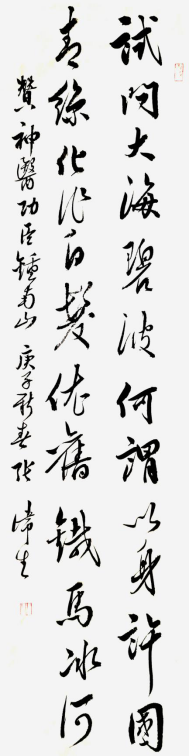 試問大海碧波何謂以身許國
青絲化作白髮依舊鐵馬冰河
贊神醫功臣鍾南山 庚子新春張偉生